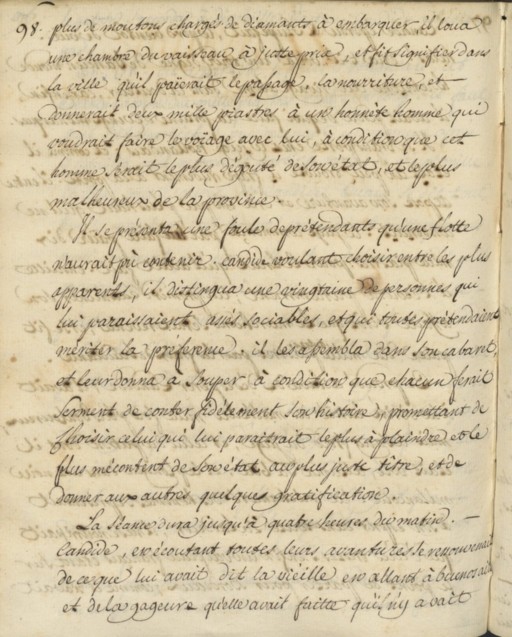 98. plus de moutons chargés de diamants à embarquer, il loua
une chambre du vaisseau à juste prix, et fit signifier dans
la ville qu'il païerait le passage, la nourriture, et
donnerait deux mille piastres à un honnête homme qui
voudrait faire le voïage avec lui, à condition que cet
homme serait le plus dégouté de son état, et le plus
malheureux de la province.
Il se présenta une foule de prétendants qu'une flotte
n'aurait pû contenir. Candide voulant choisir entre les plus
apparents, il distingua une vingtaine de personnes qui
lui paraissaient assés sociables, et qui toutes prétendaient
mériter la préférence. il les assembla dans son cabaret,
et leur donna à souper à condition que chacun ferait
serment de conter fidèlement son histoire, promettant de
choisir celui qui lui paraîtrait le plus à plaindre et le
plus mécontent de son état au plus juste titre, et de
donner aux autres quelques gratifications.
La séance dura jusqu'à quatre heures du matin. —
Candide, en écoutant toutes leurs avantures se ressouvenait
de ce que lui avait dit la vieille en allant à buenos aires
et de la gageure qu'elle avait faitte qu'il n'y avait